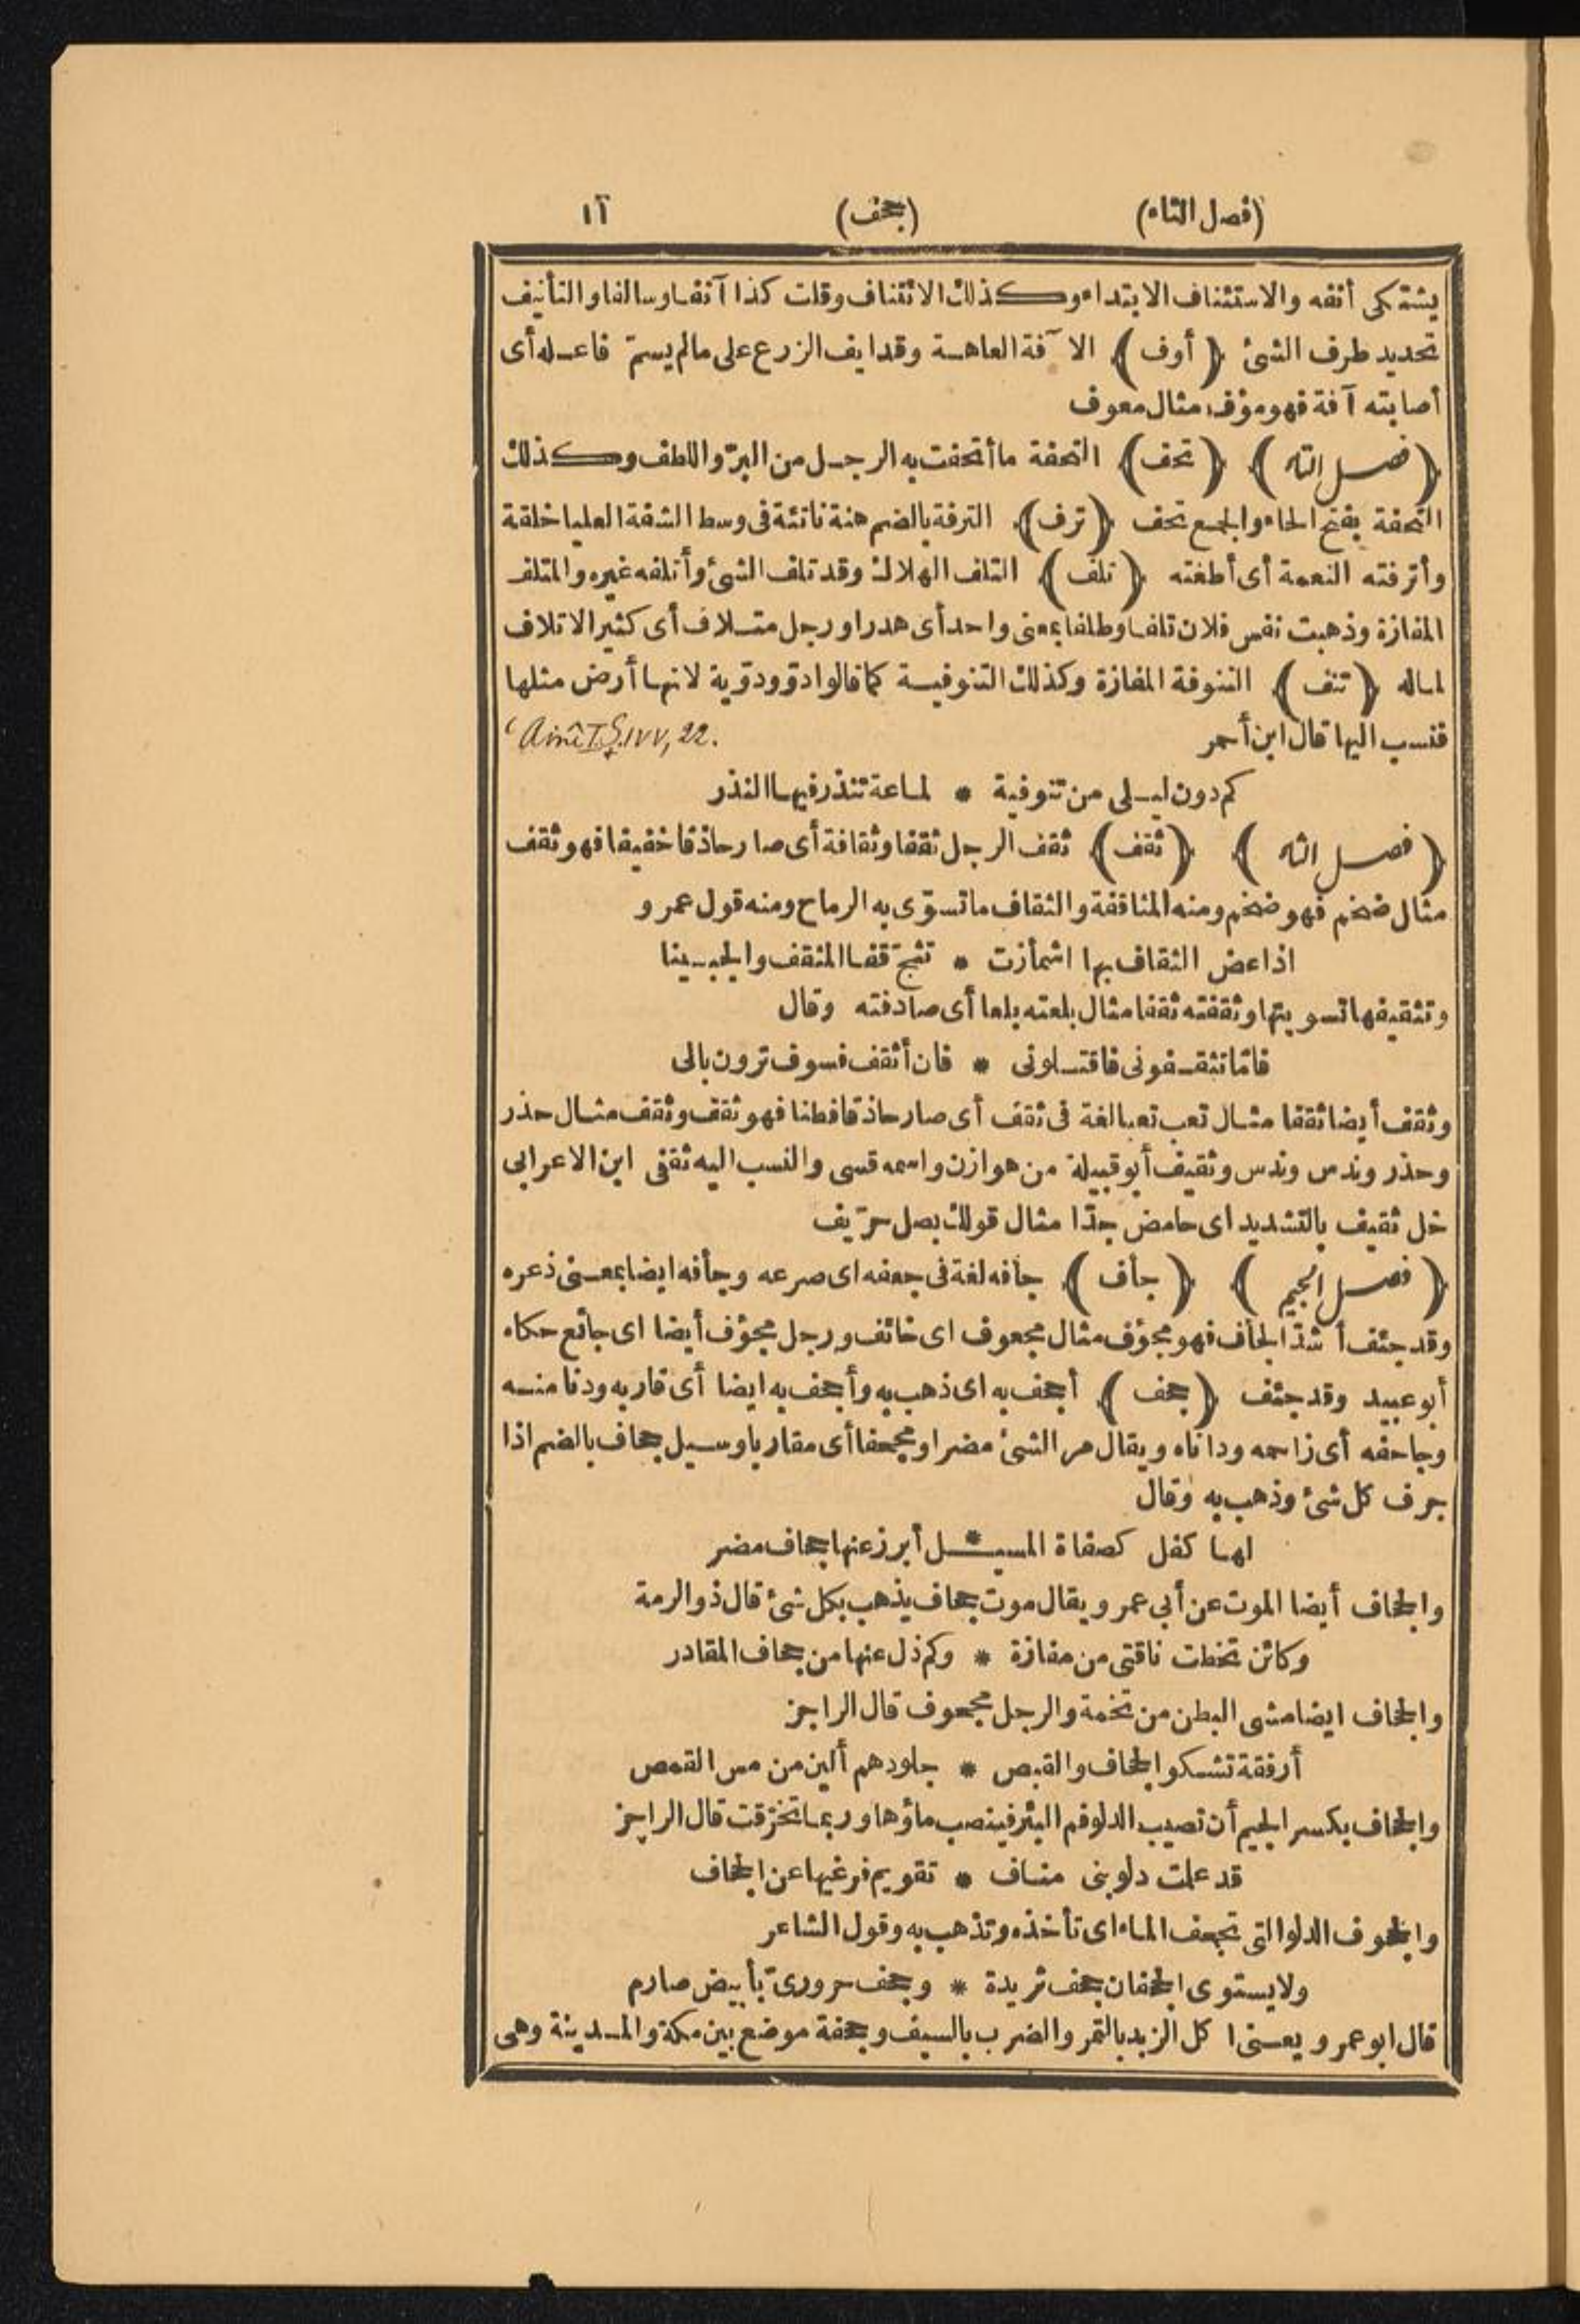 (فصل التاء) (جحف) ١٦
يشتكى أنفه والاستئناف الابتداء وكذلك الائتناف وقلت كذا آنفا وسالفا والتأنيف
تحديد طرف الشئ (أوف) الآفة العاهة وقد ايف الزرع على مالم يسمّ فاعله أى
أصابته آفة فهو مؤف مثال معوف
(فصل التاء) (تحف) التحفة ما أتحفت به الرجل من البرّ واللطف وكذلك
التحفة بفتح الحاء والجمع تحف (ترف) الترفة بالضم هنة ناتئة فى وسط الشفة العليا خلقة
وأترفته النعمة أى أطغته (تلف) التلف الهلاك وقد تلف الشئ وأتلفه غيره والمتلف
المفازة وذهبت نفس فلان تلفا وطلفا بمعنى واحد أى هدرا ورجل متلاف أى كثير الاتلاف
لماله (تنف) التنوفة المفازة وكذلك التنوفية كما قالوا دوّ ودوّية لانها أرض مثلها
فنسب اليها قال ابن أحمر
كم دون ليلى من تنوفية * لماعة تنذر فيها النذر
(فصل الثاء) (ثقف) ثقف الرجل ثقفا وثقافة أى صار حاذقا خفيفا فهو ثقف
مثال ضخم فهو ضخم ومنه المثاقفة والثقاف ما تسوّى به الرماح ومنه قول عمرو
اذا عض الثقاف بها اشمأزت * تشج قفا المثقف والجبينا
وتثقيفها تسويتها وثقفته ثقفا مثال بلعته بلعا أى صادفته وقال
فامّا تثقفونى فاقتلونى * فان أثقف فسوف ترون بالى
وثقف أيضا ثقفا مثال تعب تعبا لغة فى ثقف أى صار حاذقا فطنا فهو ثقف وثقف مثال حذر
وحذر وندس وندس وثقيف أبو قبيلة من هوازن واسمه قسى والنسب اليه ثقفى ابن الاعرابى
خل ثقيف بالتشديد اى حامض جدّا مثال قولك بصل حرّيف
(فصل الجيم) (جأف) جأفه لغة فى جعفه اى صرعه وجأفه ايضا بمعنى ذعره
وقد جئف أشدّ الجأف فهو مجؤف مثال مجعوف اى خائف ورجل مجؤف أيضا اى جائع حكاه
أبو عبيد وقد جئف (جحف) أجحف به اى ذهب به وأجحف به ايضا أى قاربه ودنا منه
وجاحفه أى زاحمه وداناه ويقال مر الشئ مضرا ومجحفا أى مقاربا وسيل جحاف بالضم اذا
جرف كل شئ وذهب به وقال
لها كفل كصفاة المسيـ*ـل أبرز عنها جحاف مضر
والجحاف أيضا الموت عن أبى عمرو ويقال موت جحاف يذهب بكل شئ قال ذو الرمة
وكائن تخطت ناقتى من مفازة * وكم ذل عنها من جحاف المقادر
والجحاف ايضا مشى البطن من تخمة والرجل مجحوف قال الراجز
أرفقة تشكو الجحاف والقبص * جلودهم ألين من مس القمص
والجحاف بكسر الجيم أن تصيب الدلو فم البئر فينصب ماؤها وربما تخرّقت قال الراجز
قد علمت دلو بنى مناف * تقويم فرغيها عن الجحاف
والجحوف الدلو التى تجحف الماء اى تأخذه وتذهب به وقول الشاعر
ولا يستوى الجحفان جحف ثريدة * وجحف حرورىّ بأبيض صارم
قال ابو عمرو يعنى ا كل الزبد بالتمر والضرب بالسيف وجحفة موضع بين مكة والمدينة وهى